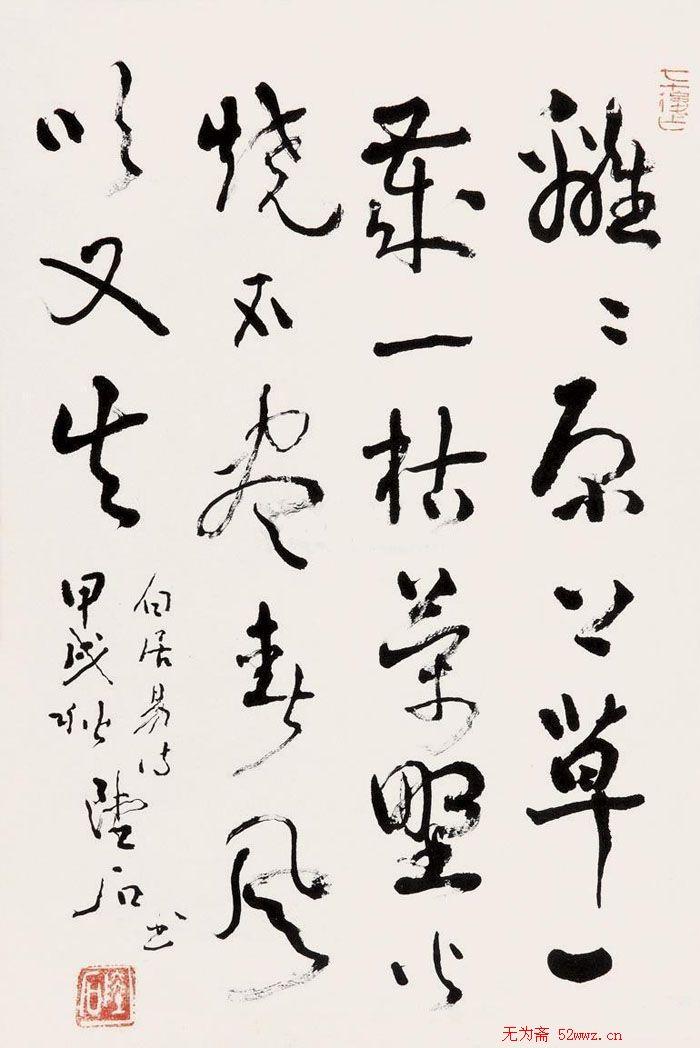 離〻原上草一
歲一枯榮野火
燒不盡春風
吹又生
白居易詩
甲戌秋陸石書
无为斋 52wwz.cn